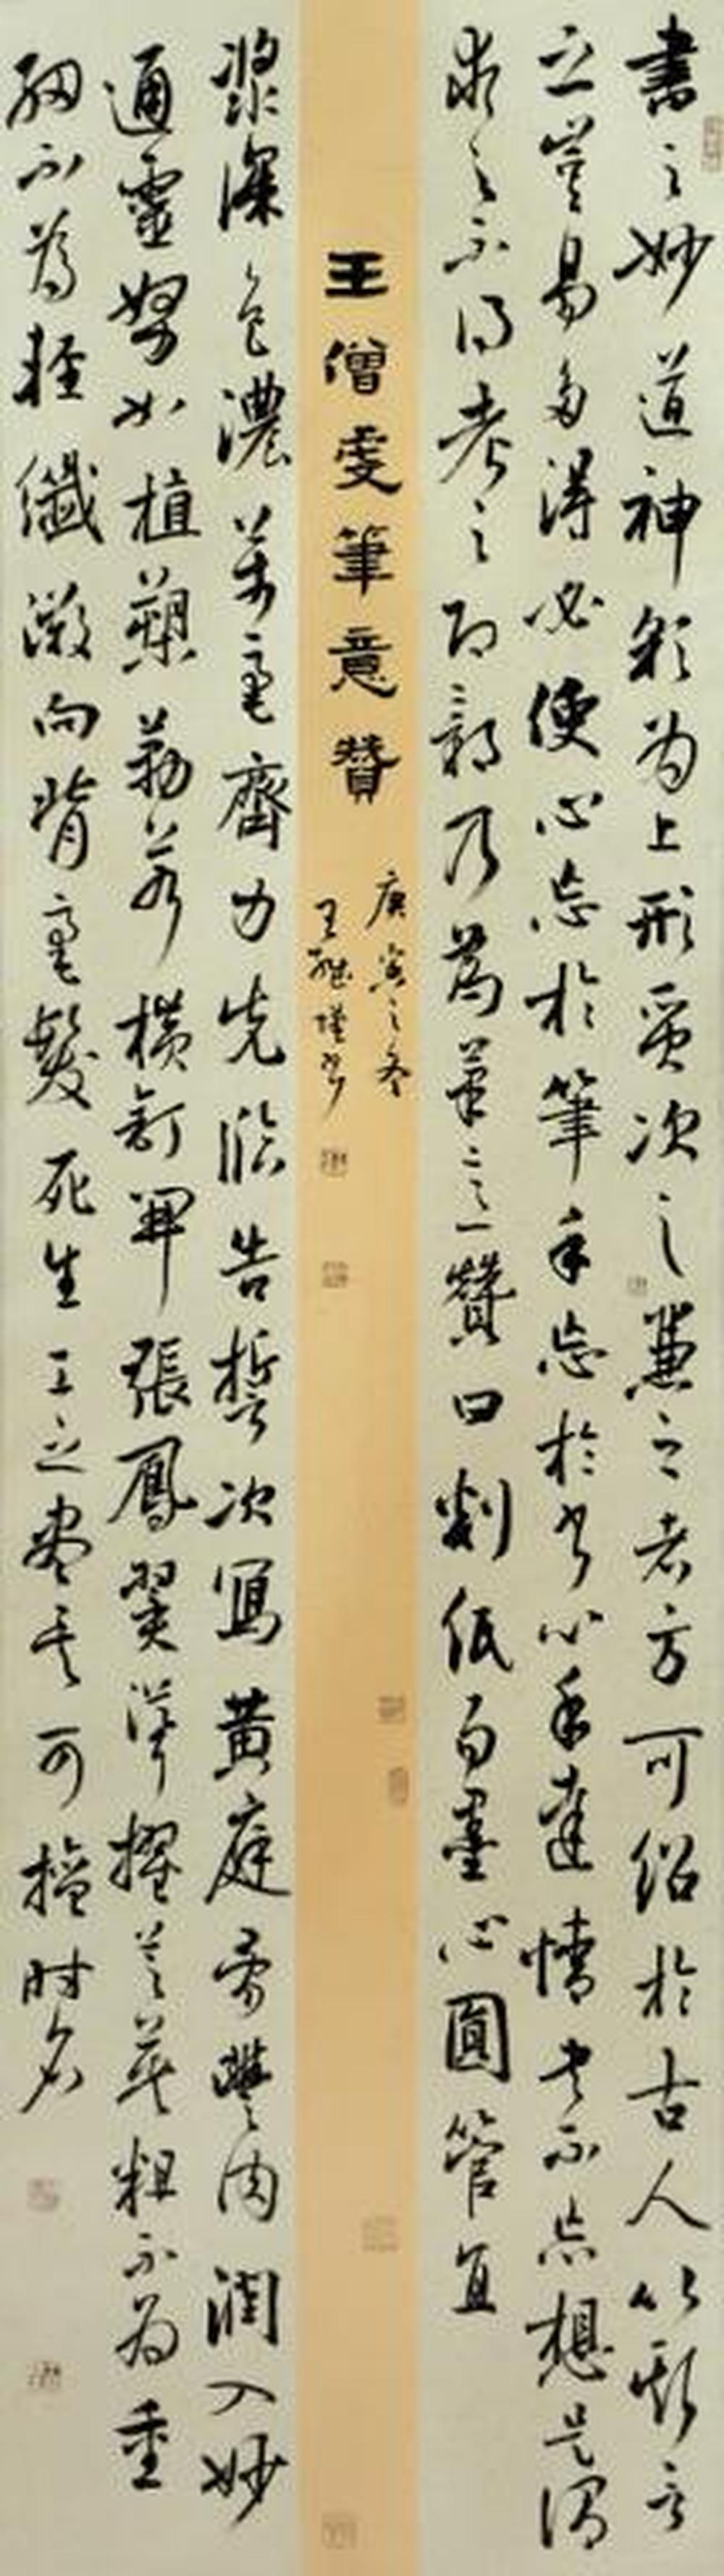 書之妙道神彩为上形質次之兼之者方可紹於古人以斯言
之豈易多得必使心忘於筆手忘於書心手達情書不忘想是謂
求之不得考之即彰乃為筆意贊曰剡紙易墨心圓管直
王僧虔筆意贊
庚寅之冬
王書
漿深色濃萬毫齊力先臨告誓次寫黄庭骨豐肉潤入妙
通靈努如植槊勒若橫釘開張鳳翼聳擢芝英粗不为重
細不為輕纖微向背毫髮死生工之盡矣可擅时名